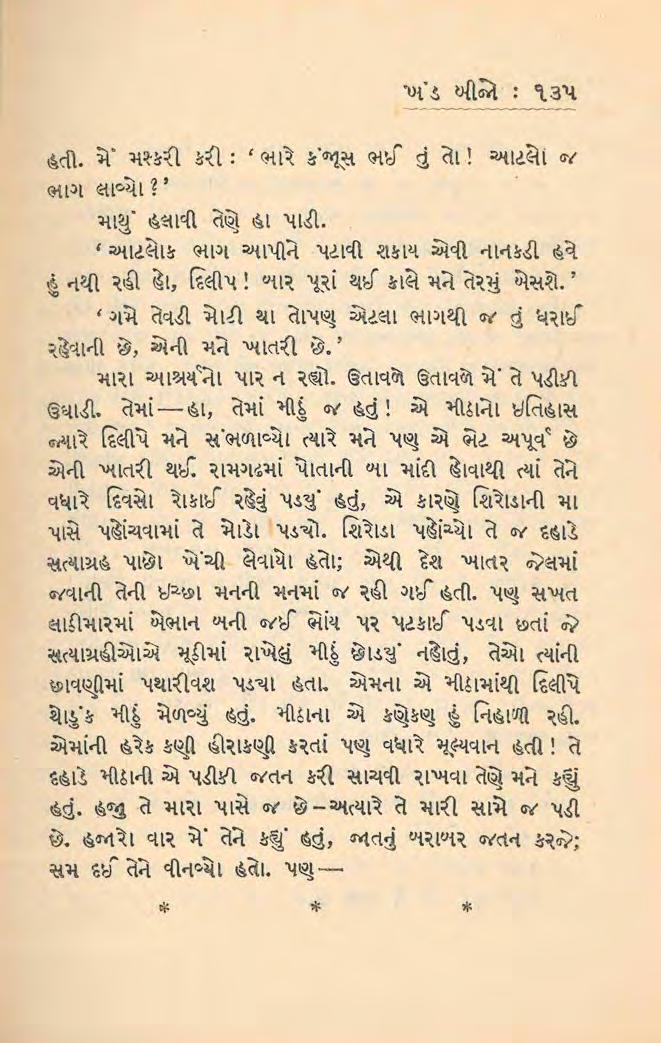 ખંડ બીજો : ૧૩૫
હતી. મેં મશ્કરી કરી : ‘ ભારે કંજૂસ ભઈ તું તો! આટલો જ
ભાગ લાવ્યો ?’
માથું હલાવી તેણે હા પાડી.
‘ આટલોક ભાગ આપીને પટાવી શકાય એવી નાનકડી હવે
હું નથી રહી હો, દિલીપ! બાર પૂરાં થઈ કાલે મને તેરમું બેસશે.’
‘ ગમે તેવડી મોટી થા તોપણ એટલા ભાગથી જ તું ધરાઈ
રહેવાની છે, એની મને ખાતરી છે.’
મારા આશ્ચર્યનો પાર ન રહ્યો. ઉતાવળે ઉતાવળે મેં તે પડીકી
ઉઘાડી. તેમાં—હા, તેમાં મીઠું જ હતું! એ મીઠાનો ઇતિહાસ
જ્યારે દિલીપે મને સંભળાવ્યો ત્યારે મને પણ એ ભેટ અપૂર્વ છે
એની ખાતરી થઈ. રામગઢમાં પોતાની બા માંદી હોવાથી ત્યાં તેને
વધારે દિવસો રોકાઈ રહેવું પડ્યું હતું, એ કારણે શિરોડાની મા
પાસે પહોંચવામાં તે મોડો પડ્યો. શિરોડા પહોંચ્યો તે જ દહાડે
સત્યાગ્રહ પાછો ખેંચી લેવાયો હતો; એથી દેશ ખાતર જેલમાં
જવાની તેની ઇચ્છા મનની મનમાં જ રહી ગઈ હતી. પણ સખત
લાઠીમારમાં બેભાન બની જઈ ભોંય પર પટકાઈ પડવા છતાં જે
સત્યાગ્રહીઓએ મૂઠીમાં રાખેલું મીઠું છોડ્યું નહોતું, તેઓ ત્યાંની
છાવણીમાં પથારીવશ પડ્યા હતા. એમના એ મીઠામાંથી દિલીપે
થોડુંક મીઠું મેળવ્યું હતું. મીઠાના એ કણેકણ હું નિહાળી રહી.
એમાંની હરેક કણી હીરાકણી કરતાં પણ વધારે મૂલ્યવાન હતી! તે
દહાડે મીઠાની એ પડીકી જતન કરી સાચવી રાખવા તેણે મને કહ્યું
હતું. હજુ તે મારા પાસે જ છે–અત્યારે તે મારી સામે જ પડી
છે. હજારો વાર મેં તેને કહ્યું હતું, જાતનું બરાબર જતન કરજે;
સમ દઈ તેને વીનવ્યો હતો. પણ—
* * *